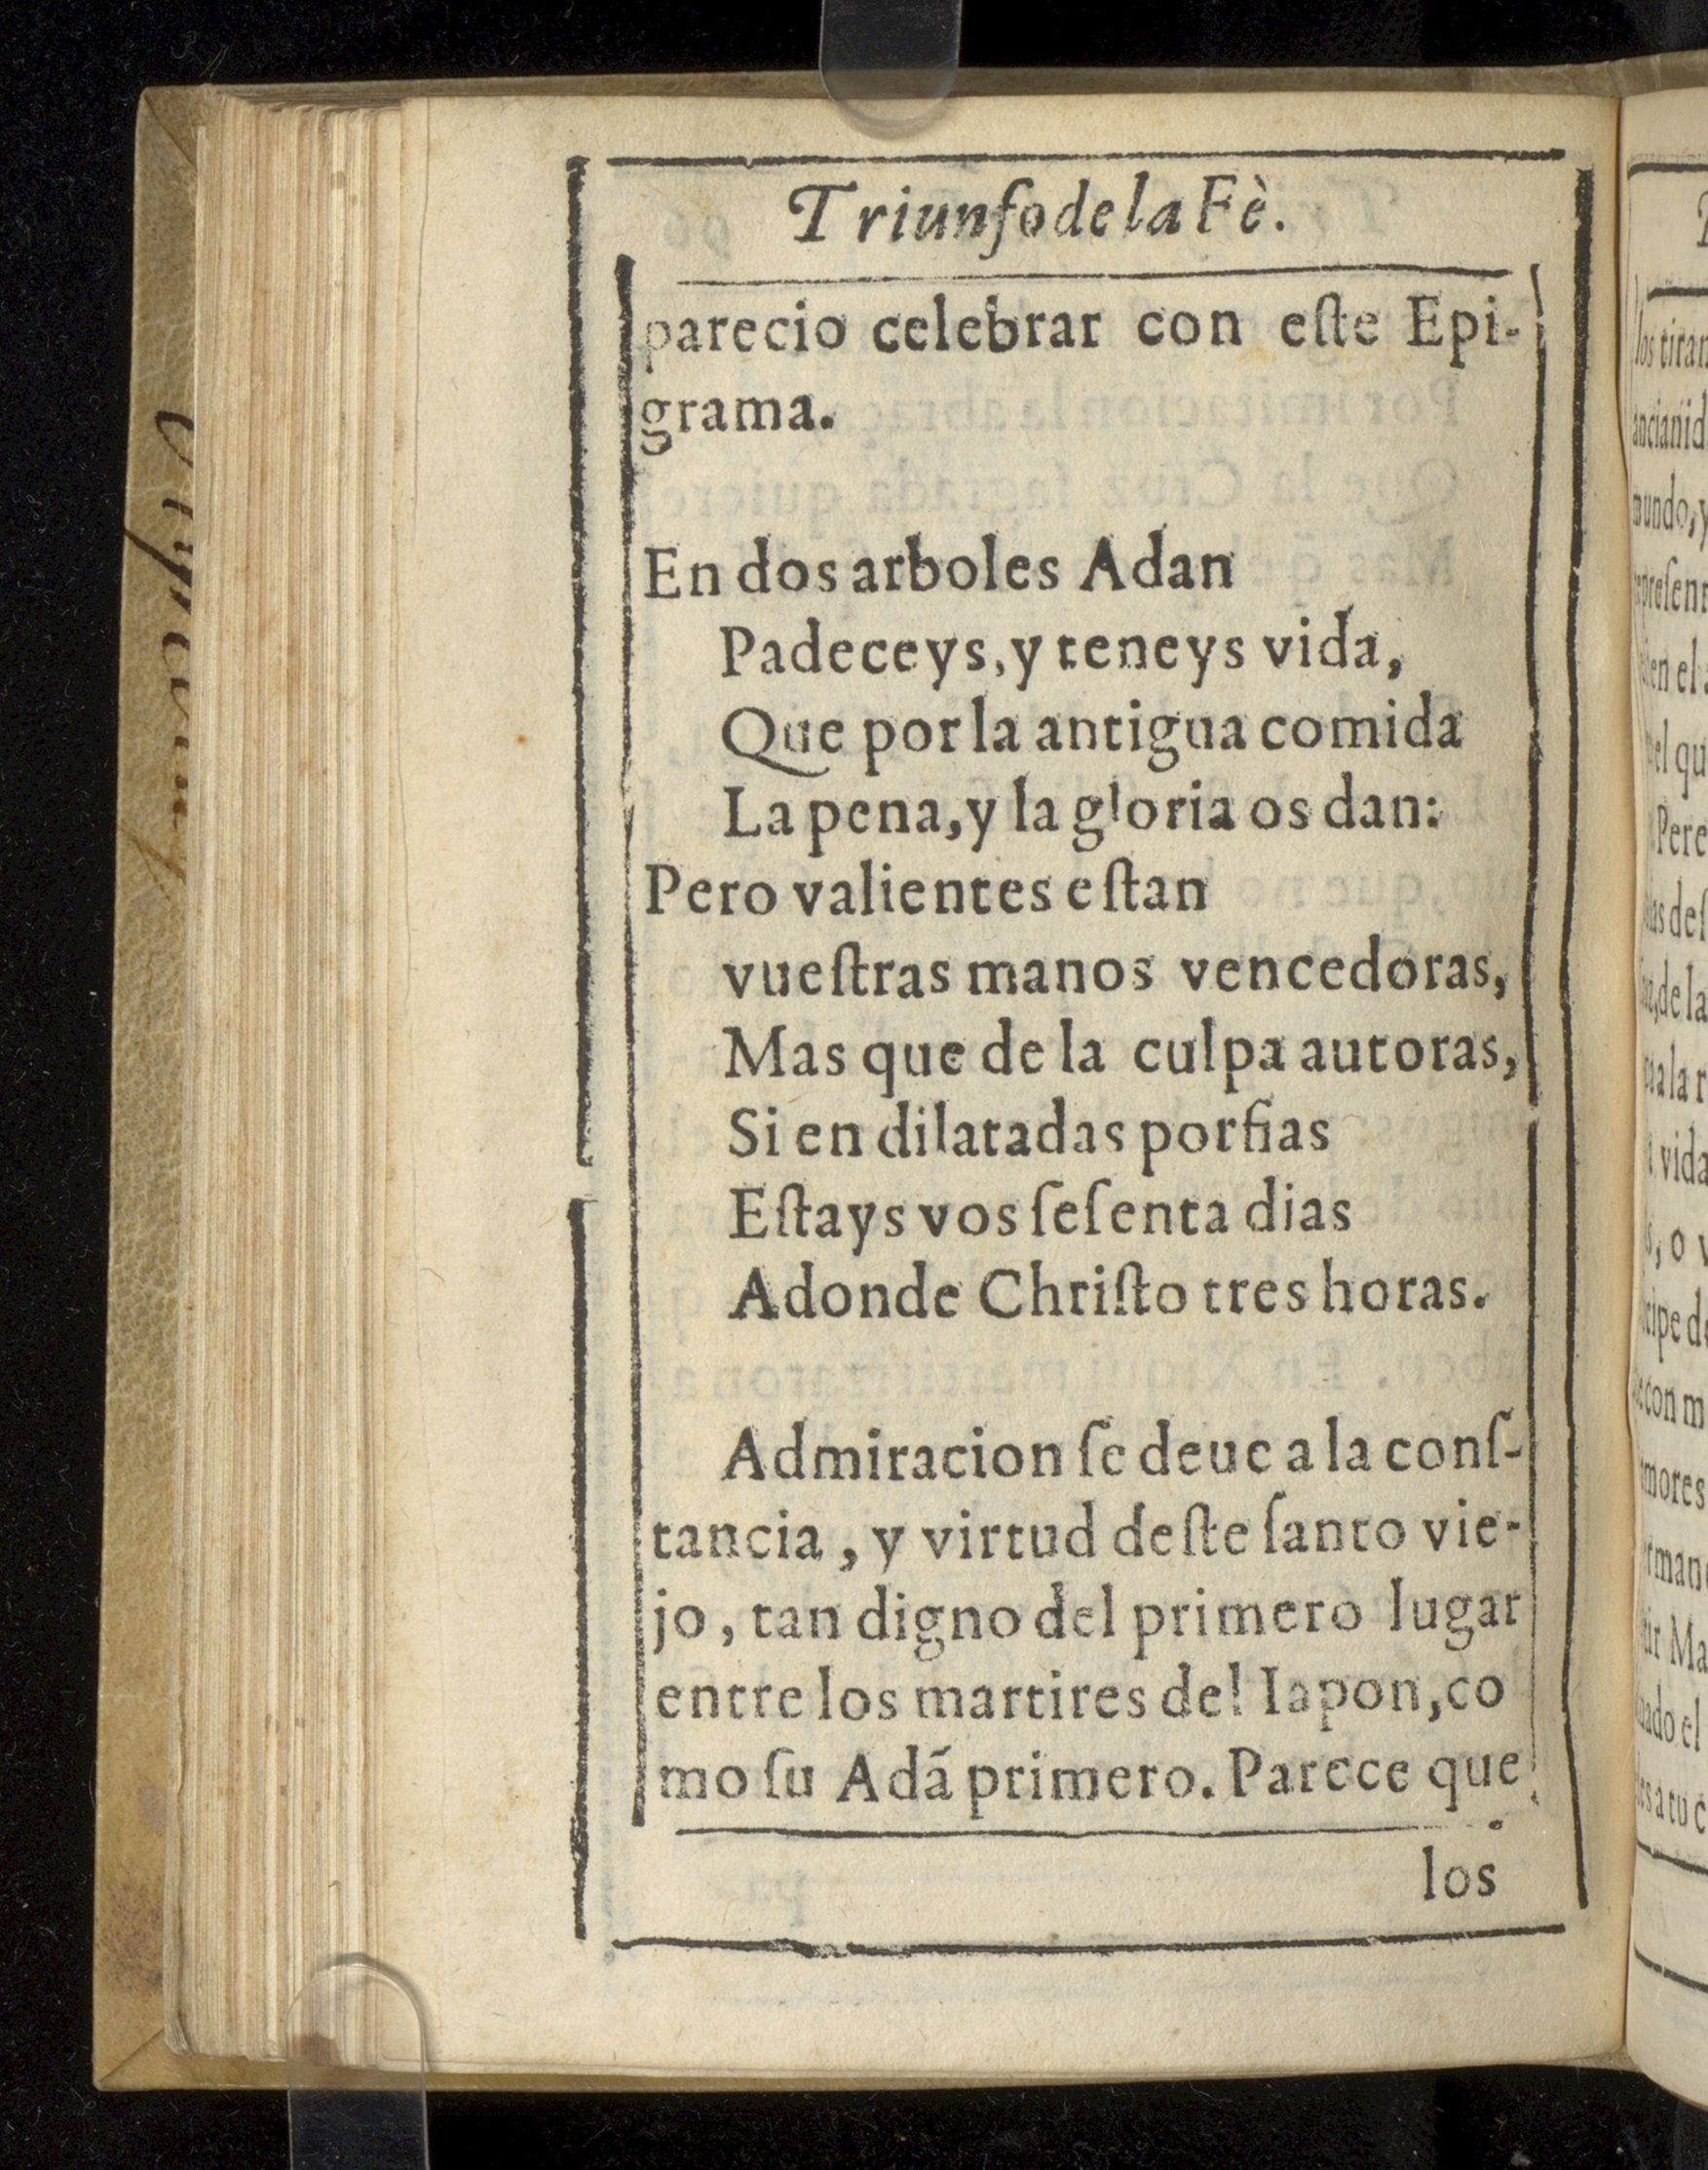 Triunfo de la Fè.
parecio celebrar con eſte Epi-
grama.
En dos arboles Adan
Padeceys, y teneys vida,
Que por la antigua comida
La pena, y la gloria os dan:
Pero valientes eſtan
vueſtras manos vencedoras,
Mas que de la culpa autoras,
Si en dilatadas porfias
Eſtays vos ſeſenta dias
Adonde Chriſto tres horas.
Admiracion ſe deue a la conſ-
tancia, y virtud deſte ſanto vie-
jo, tan digno del primero lugar
entre los martires del Iapon, co
mo ſu Adã primero. Parece que
los